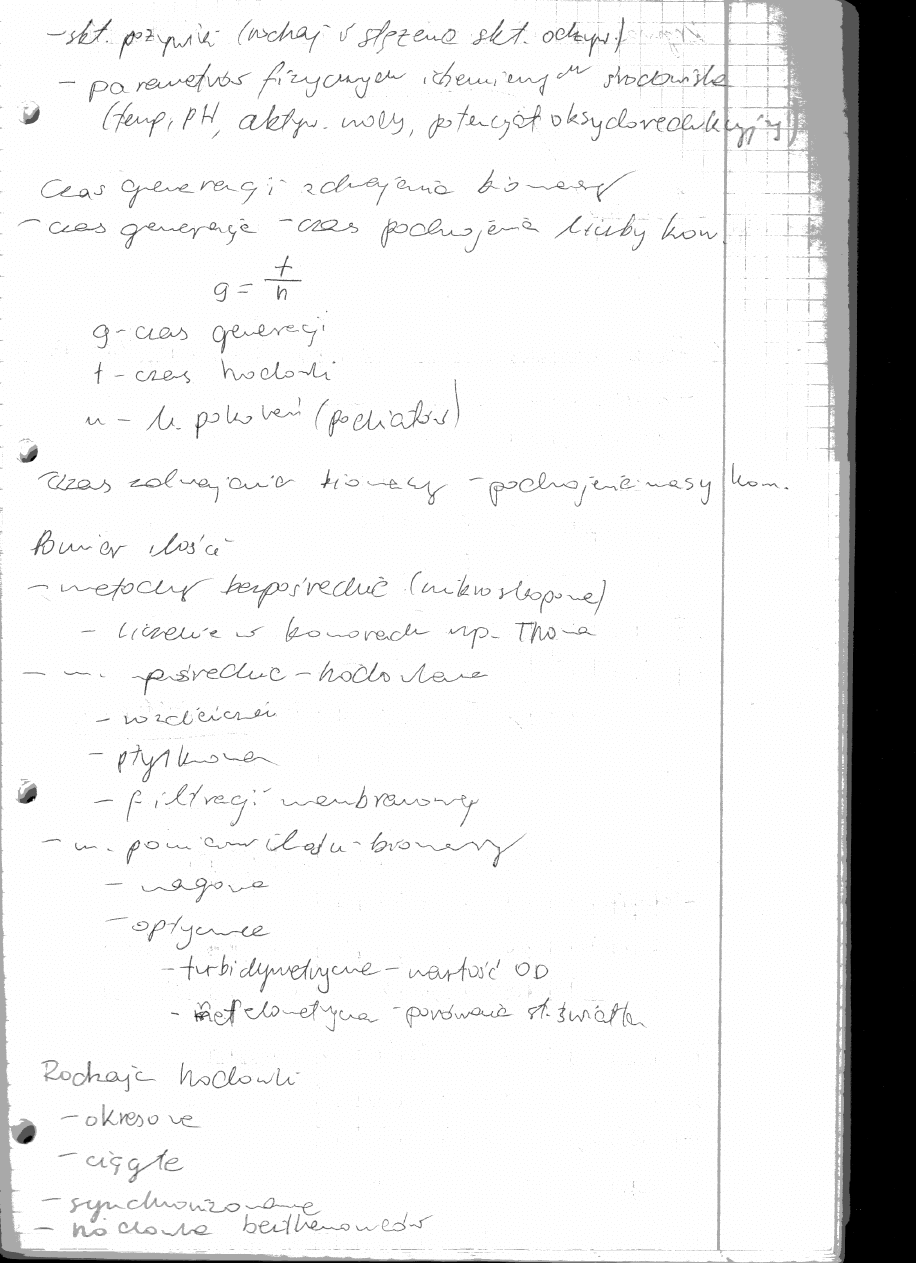 - skł. pożywki (rodzaj i stężenie skł. odżyw.)
- parametrów fizycznych i chemicznych środowiska
(temp, pH, aktyw. wody, potencjał oksydoredukcyjny)
Czas generacji i zdwajania biomasy
- czas generacji - czas podwojenia liczby kom.
g = t/n
g - czas generacji
t - czas hodowli
n - l. pokoleń (podziałów)
Czas zdwajania biomasy - podwojenie masy kom.
Pomiar ilości
- metody bezpośrednie (mikroskopowe)
- liczenie w komorach np. Thoma
- m. pośrednie - hodowlane
- rozcieńczeń
- płytkowa
- filtracji membranowej
- m. pomiaru ilości biomasy
- wagowa
- optyczne
- turbidymetryczne - wartość OD
- nefelometryczna - porównanie światła
Rodzaje hodowli
- okresowe
- ciągłe
- synchronizowane
- hodowla beztlenowców